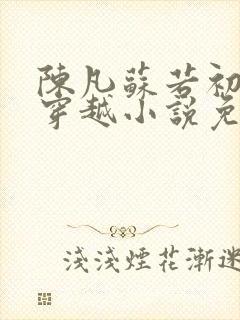 陳凡蘇若初
穿越小說免
淺淺煙花漸迷